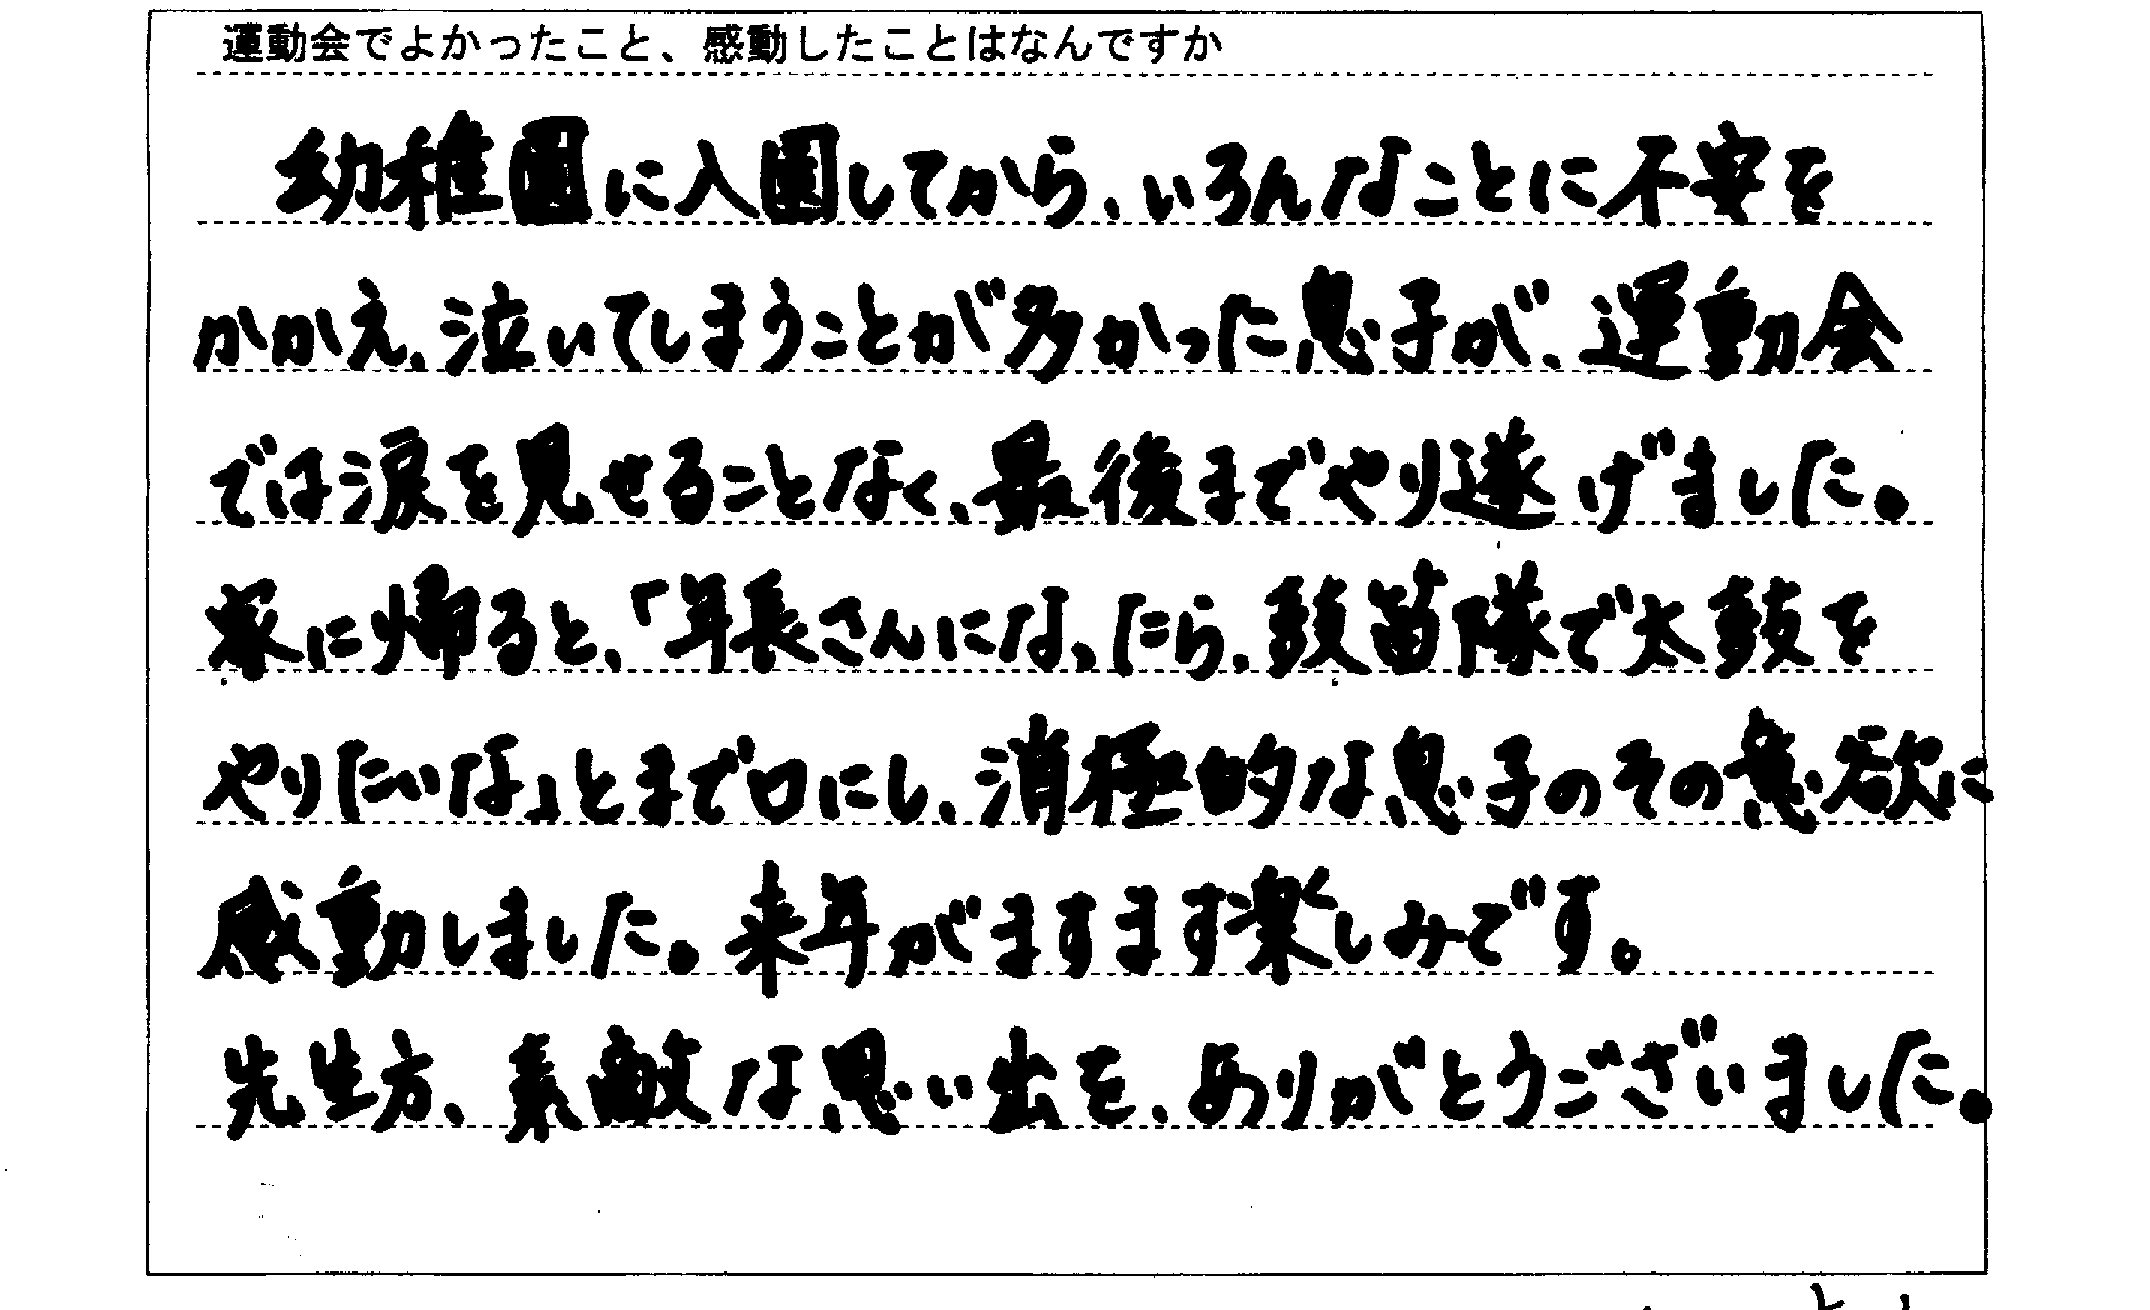 運動会でよかったこと、感動したことはなんですか
幼稚園に入園してから、いろんなことに不安を
かかえ、泣いてしまうことが多かった息子が、運動会
では涙を見せることなく、最後までやり遂げました。
家に帰ると、「年長さんになったら、鼓笛隊で太鼓を
やりたいな」とまで口にし、消極的な息子のその意欲に
感動しました。来年がますます楽しみです。
先生方、素敵な思い出を、ありがとうございました。